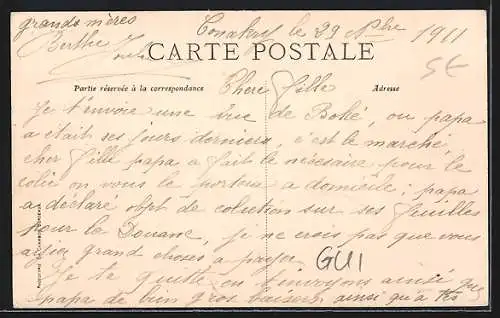 grands mères
Conakry le 29 9bre 1911
Berthe
CARTE POSTALE
5€
Partie réservée à la correspondance
Adresse
Chere fille
Je t'envoie une vue de Boké, ou papa
a était ses jours derniers, c'est le marché,
cher fille papa a fait le nésesaire pour le
colie on vous le portera a domicile ; papa
a déclaré objet de colution sur ses feuilles
pour la Douane, je ne crois pas que vous
ayiez grand choses a payer
GUI
Je te quitte en t'envoyens ainsi que
papa de bien gros baisers ainsi qu'a tes